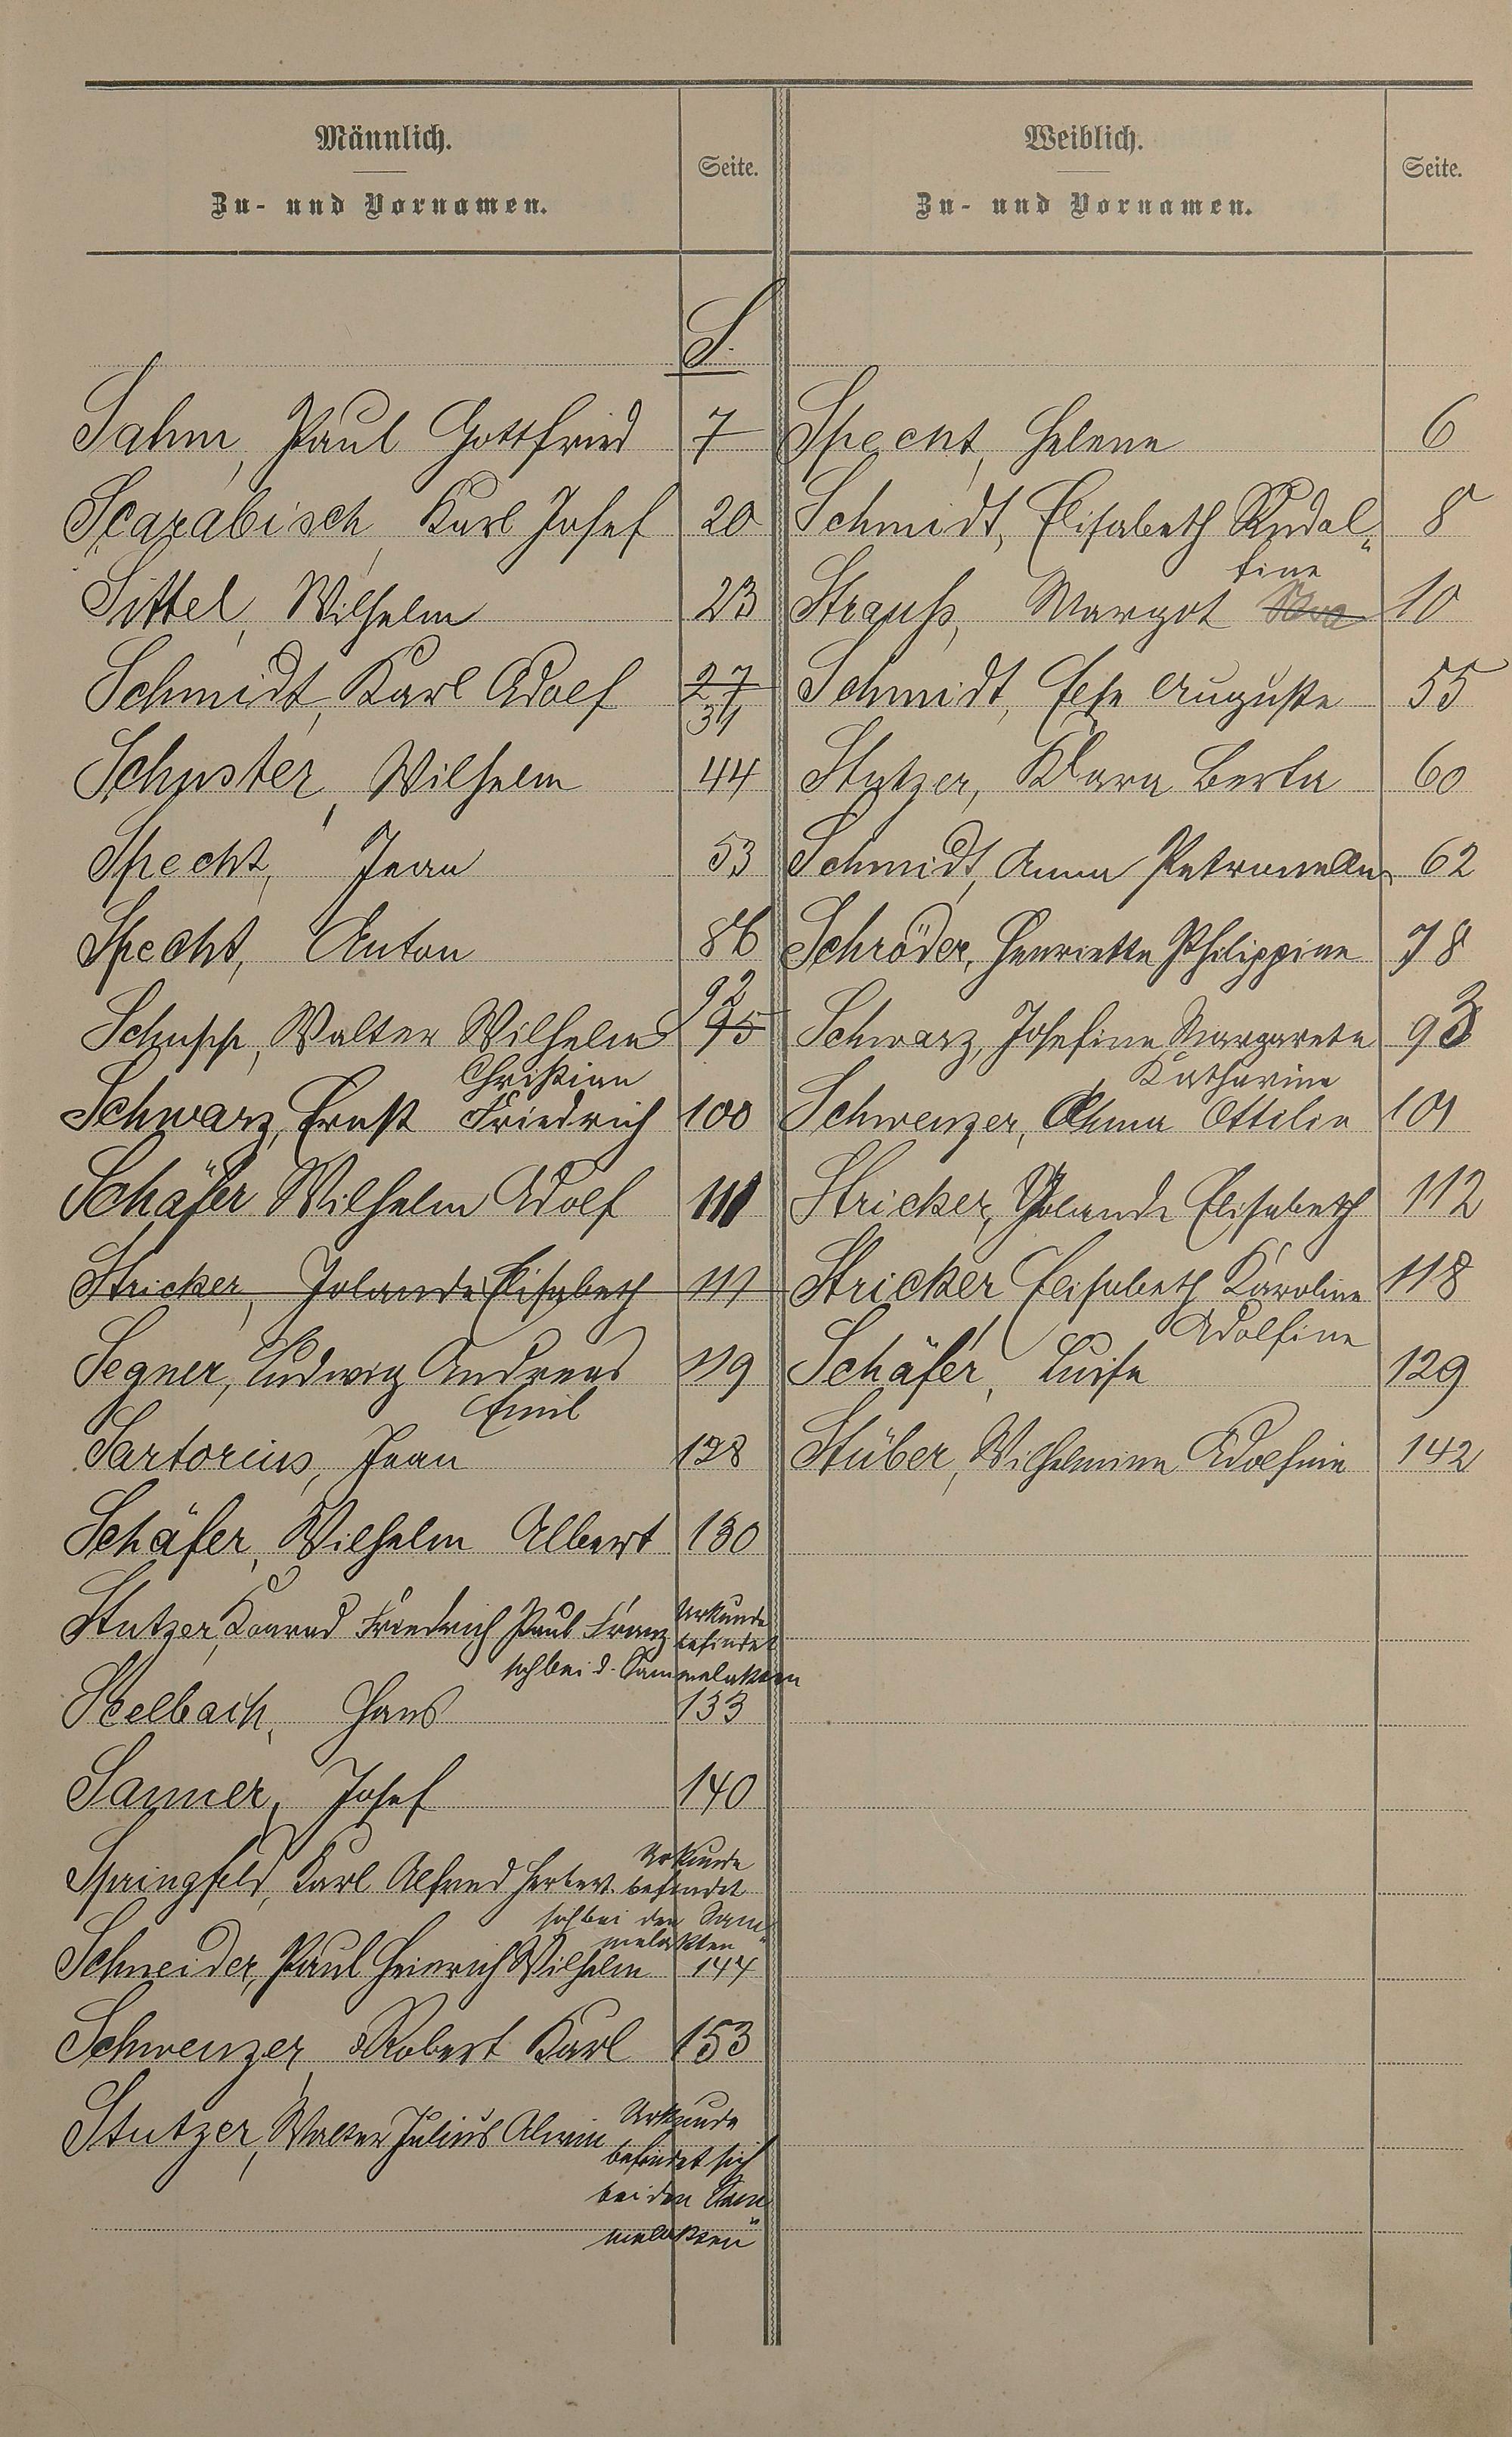 Männlich.
Zu- und Vornamen.
Seite.
Weiblich.
Zu- und Vornamen.
Seite.
S.
Sahm, Paul Gottfried 7
Scarabisch, Karl Josef 20
Sittel, Wilhelm 23
Schmidt, Karl Adolf 27
31
Schuster, Wilhelm 44
Specht, Jean 53
Specht, Anton 86
92
Schupp, Walter Wilhelm 95
Christian
Schwarz, Ernst Friedrich 100
Schäfer Wilhelm Adolf 111
Stricker, Jolande Elisabeth 111
Segner, Ludwig Andreas 119
Emil
Sartorius, Jean 128
Schäfer, Wilhelm Albert 130
Stutzer, Konrad Friedrich Paul Franz Urkunde
befindet
sich bei d. Sammelakten
Seelbach, Hans 133
Sanner, Josef 140
Springfeld, Karl Alfred Herbert. Urkunde
befindet
sich bei den Sam„
melakten
Schneider, Paul Heinrich Wilhelm 144
Schwenzer, Robert Karl 153
Stutzer, Walter Julius Alwin Urkunde
befindet sich
bei den Sam„
melakten
Specht, Helene 6
Schmidt, Elisabeth Rudol„ 8
fine
Strauß, Margot 10
Schmidt, Else Auguste 55
Stutzer, Klara Berta 60
Schmidt, Anna Petronella 62
Schröder, Henriette Philippine 78
Schwarz, Josefine Margareta 93
Katharina
Schwenzer, Anna Ottilie 101
Stricker, Yolande Elisabeth 112
Stricker Elisabeth Karoline 118
Adolfine
Schäfer, Luise 129
Stüber, Wilhelmine Adolfine 142